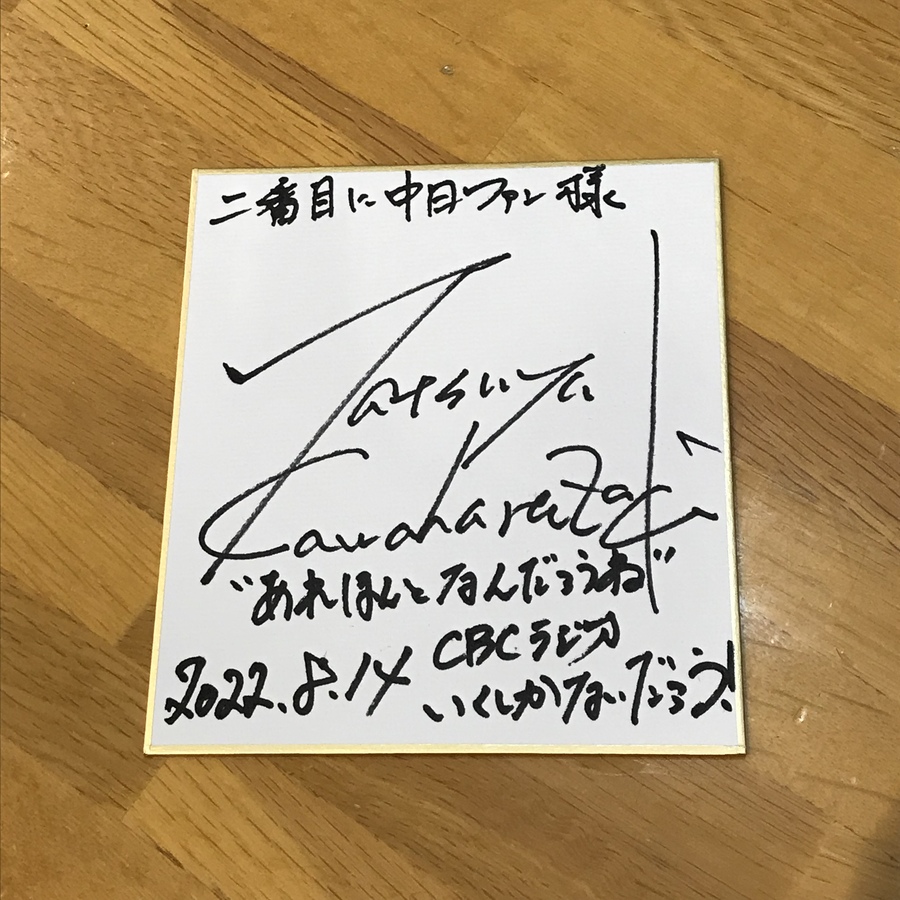 二番目に中日ファン様
Tatsuya
Kawaharazaki
"あれほんとなんだろうね"
CBCラジオ
2022.8.14
いくしかないだろう!